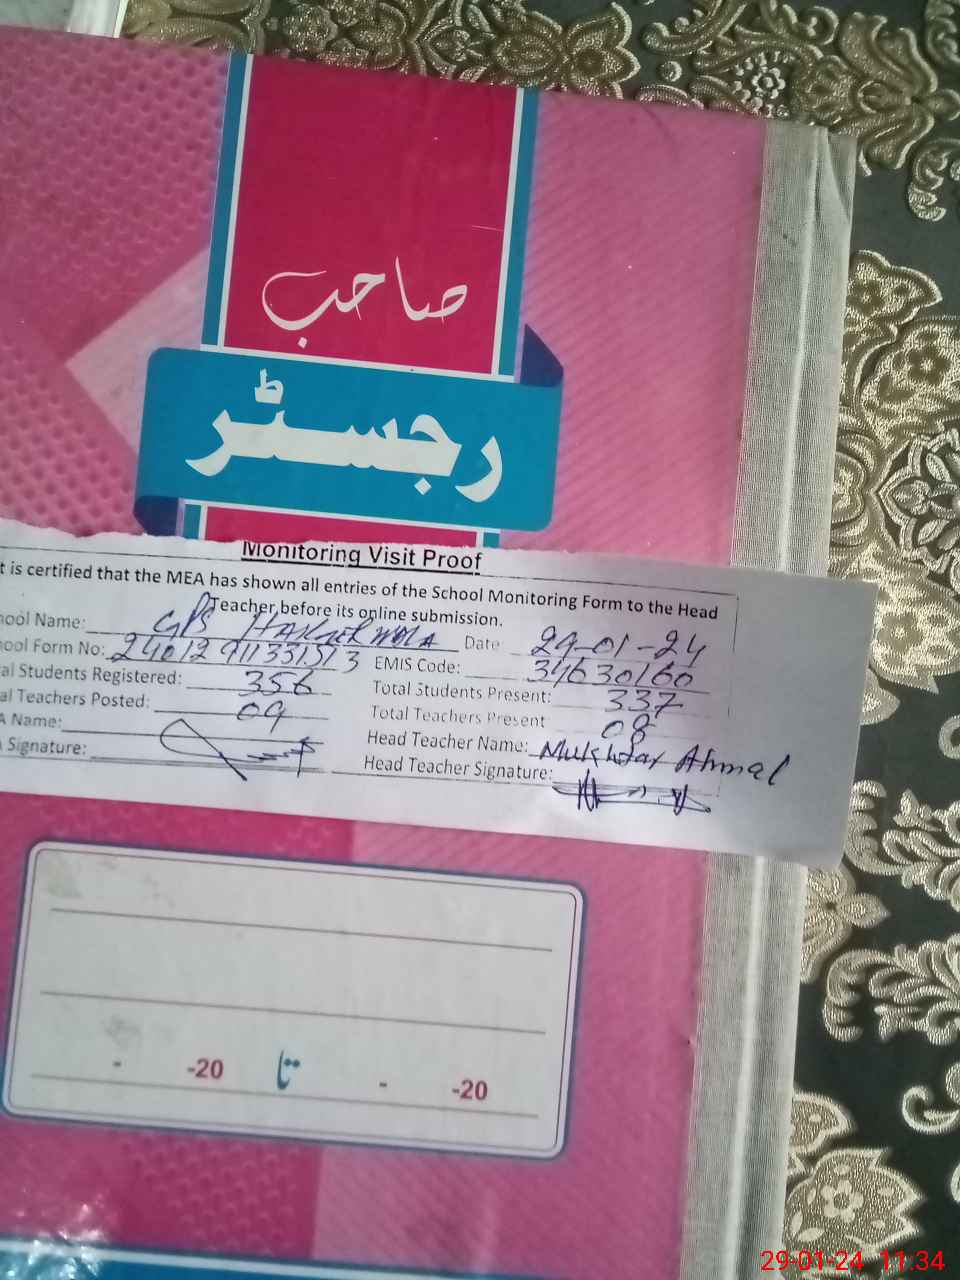 صاحب
رجسٹر
Monitoring Visit Proof
t is certified that the MEA has shown all entries of the School Monitoring Form to the Head
Teacher before its online submission.
hool Name: GPS Date 29-01-24
hool Form No: EMIS Code: 34630160
al Students Registered: 356 Total Students Present: 337
al Teachers Posted: 09 Total Teachers Present 08
A Name: Head Teacher Name: Mukhtar Ahmad
Signature: Head Teacher Signature:
- -20 تا - -20
29-01-24 11:34